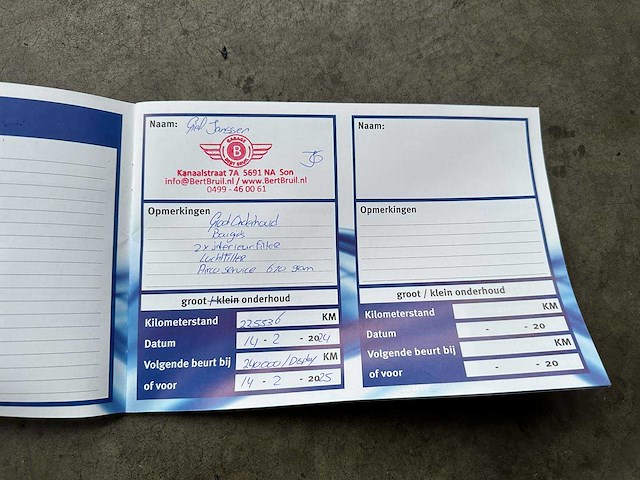 Naam: Janssen
GARAGE
B
BERT BRUIL
Kanaalstraat 7A 5691 NA Son
info@BertBruil.nl / www.BertBruil.nl
0499 - 46 00 61
Opmerkingen
Groot Onderhoud
Bougies
2x interieurfilter
Luchtfilter
Airco service 670 gram
groot / klein onderhoud
Kilometerstand 225536 KM
Datum 14 - 2 - 2024
Volgende beurt bij 240000/Display KM
of voor 14 - 2 - 2025
Naam:
Opmerkingen
groot / klein onderhoud
Kilometerstand KM
Datum - - 20
Volgende beurt bij KM
of voor - - 20